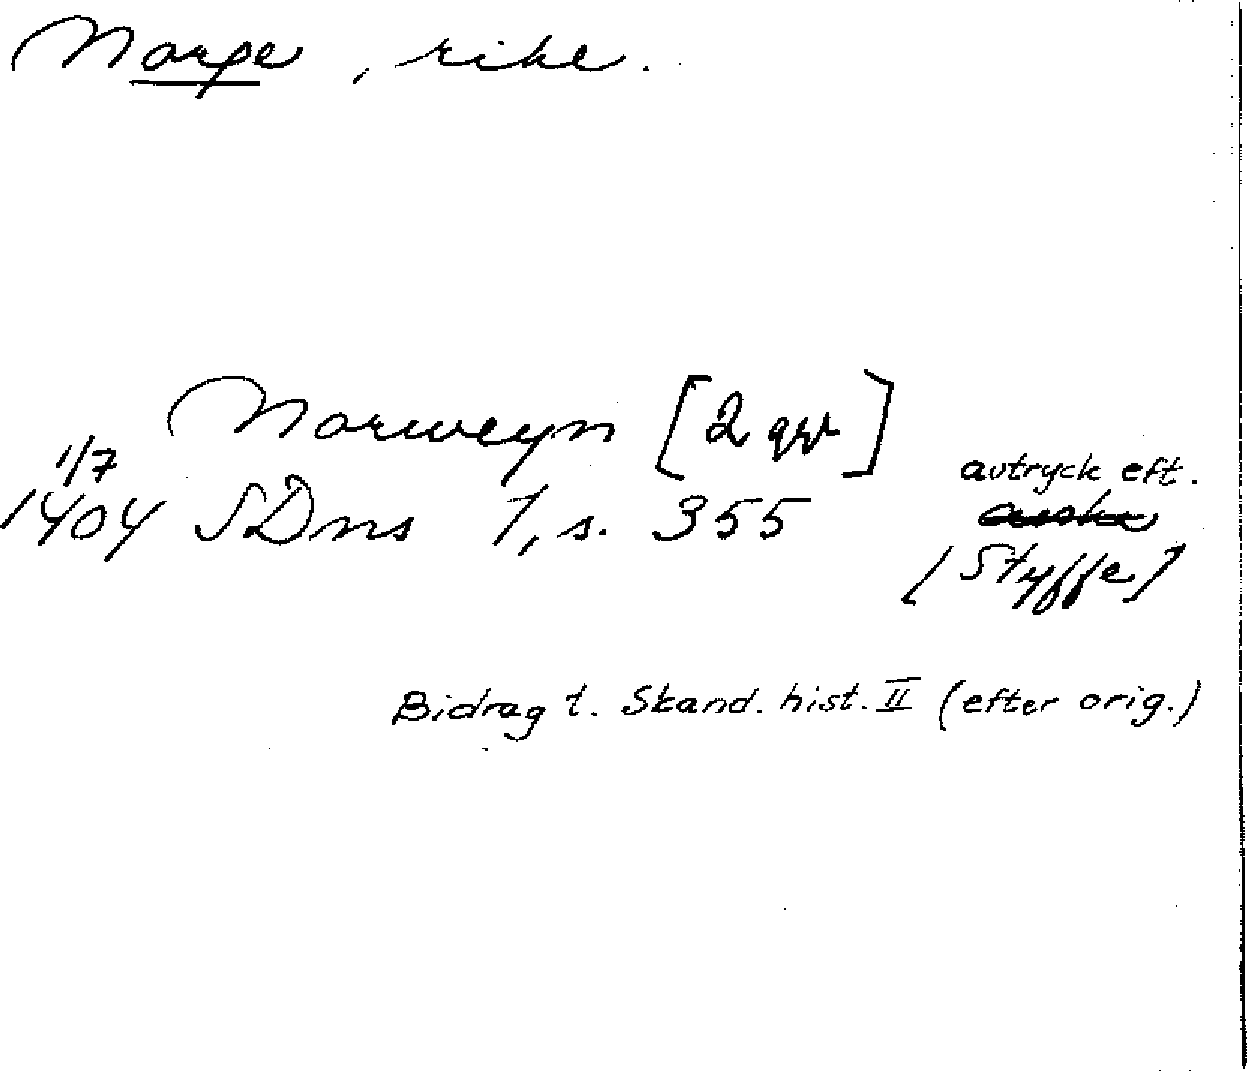 Norge, rike.
Norweyn [2 ggr]
1/7
1404 SDns 1, s. 355
avtryck eft.
[Styffe]
Bidrag t. Skand. hist. II (efter orig.)